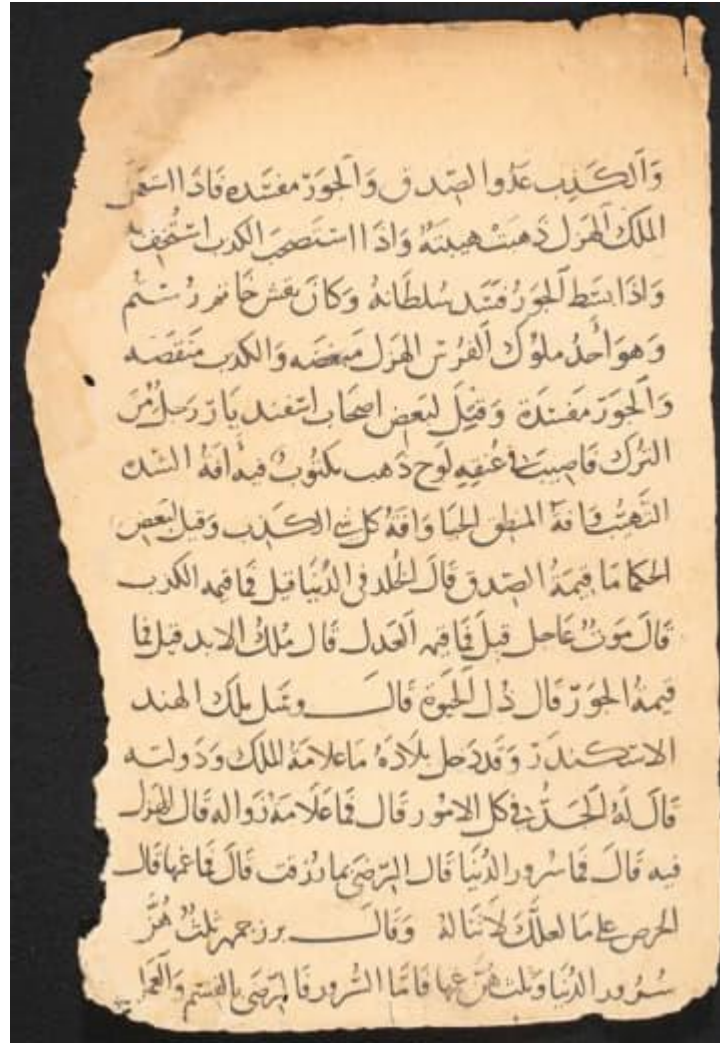 وَالكَذِب عَدُو الصِّدق وَالجَوَرّ مفسَده فَاذَا استعمَل
الملك الهَزل ذَهبَت هَيبَتهُ وَاذَا استَصحَبَ الكَدب استُخف به
وَاذَا بسَط الجَورُ فسَد سُلطَانهُ وَكانَ نقش خَاتم رُستُم
وَهوَ أحدُ ملوُك الفُرس الهَزل مَبغضَه وَالكَدب مَنقصَه
وَالجَوَرّ مَفسَدَة وَقيِلَ لبَعضِ اصحَاب اسفنديَارّ رَجلُ مِن
التُرك فَاصِيبَ في عُنقِهِ لَوح ذَهَب مَكتُوبٌ فيه افَة الشده
التَهيّب وَافةُ المنطِق الحيَا وَافَةُ كل شي الكَذِب وَقيلَ لبَعض
الحكمَا مَا قيِمَةُ الصِّدق قَالَ الخُلد فى الدُنيَا قيل فَمَا قيمه الكدب
قَالَ مَوتٌ عَاجل قيلَ فَمَا قيمه العَدل قَال مُلكُ الابد قيل فما
قيمَةُ الجَوَرّ قَال ذُل الحَيَوة قَالَــــ وسَئل ملك الهند
الاسكندرّ وَقَد دَخل بلَادَهُ مَا عَلامَةُ المُلك وَدَولتــه
قَالَ لَهُ الجَدُّ في كل الامُور قَال فَمَا عَلَامَة زوَاله قَال الهَزل
فيه قَالَ فَمَا سُرور الدُنيَا قَالَ الرّضَى بمَا رُزقت قَالَ فَمَا غمهَا قَالَ
الحَرص عَلى مَا لعلَّكَ لَا تنَالهُ وَقَالَــــ برزجمهر ثلثٌ هُنَّ
سُرُور الدُنيَا وَثلث هُنَّ غمهَا فَامَّا السُّرور فَالرّضَى بالقسَم وَالعَمَل